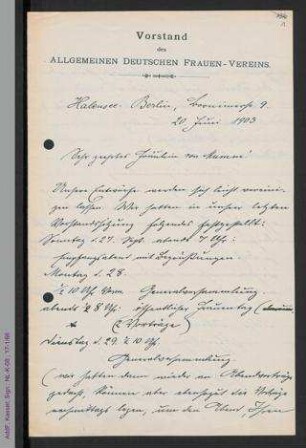 Vorstand
des
ALLGEMEINEN DEUTSCHEN FRAUEN-VEREINS.
Halensee-Berlin, 9.
20. Juni 1903
Sehr geehrtes Fräulein von
Unsere Entwürfe werden sich leicht vereini-
gen lassen. Wir hatten in unser letzten
Vorstandssitzung folgendes festgestellt:
Sonntag d. 27. Sept. abends 7 Uhr:
Empfangsabend mit Begrüßungen.
Montag d. 28.
½ 10 Uhr Vorm Generalversammlung
abends 8 Uhr: öffentlicher Frauentag
(2 Vorträge)
Dienstag d. 29. ½ 10 Uhr.
Generalversammlung
(wir hatten dann wieder an Abendvorträge
gedacht, können aber ebensogut die Vorträge
vormittags legen, um den Abend Ihnen
AddF, Kassel, Sign.: NL-K-08 ; 17-1/66